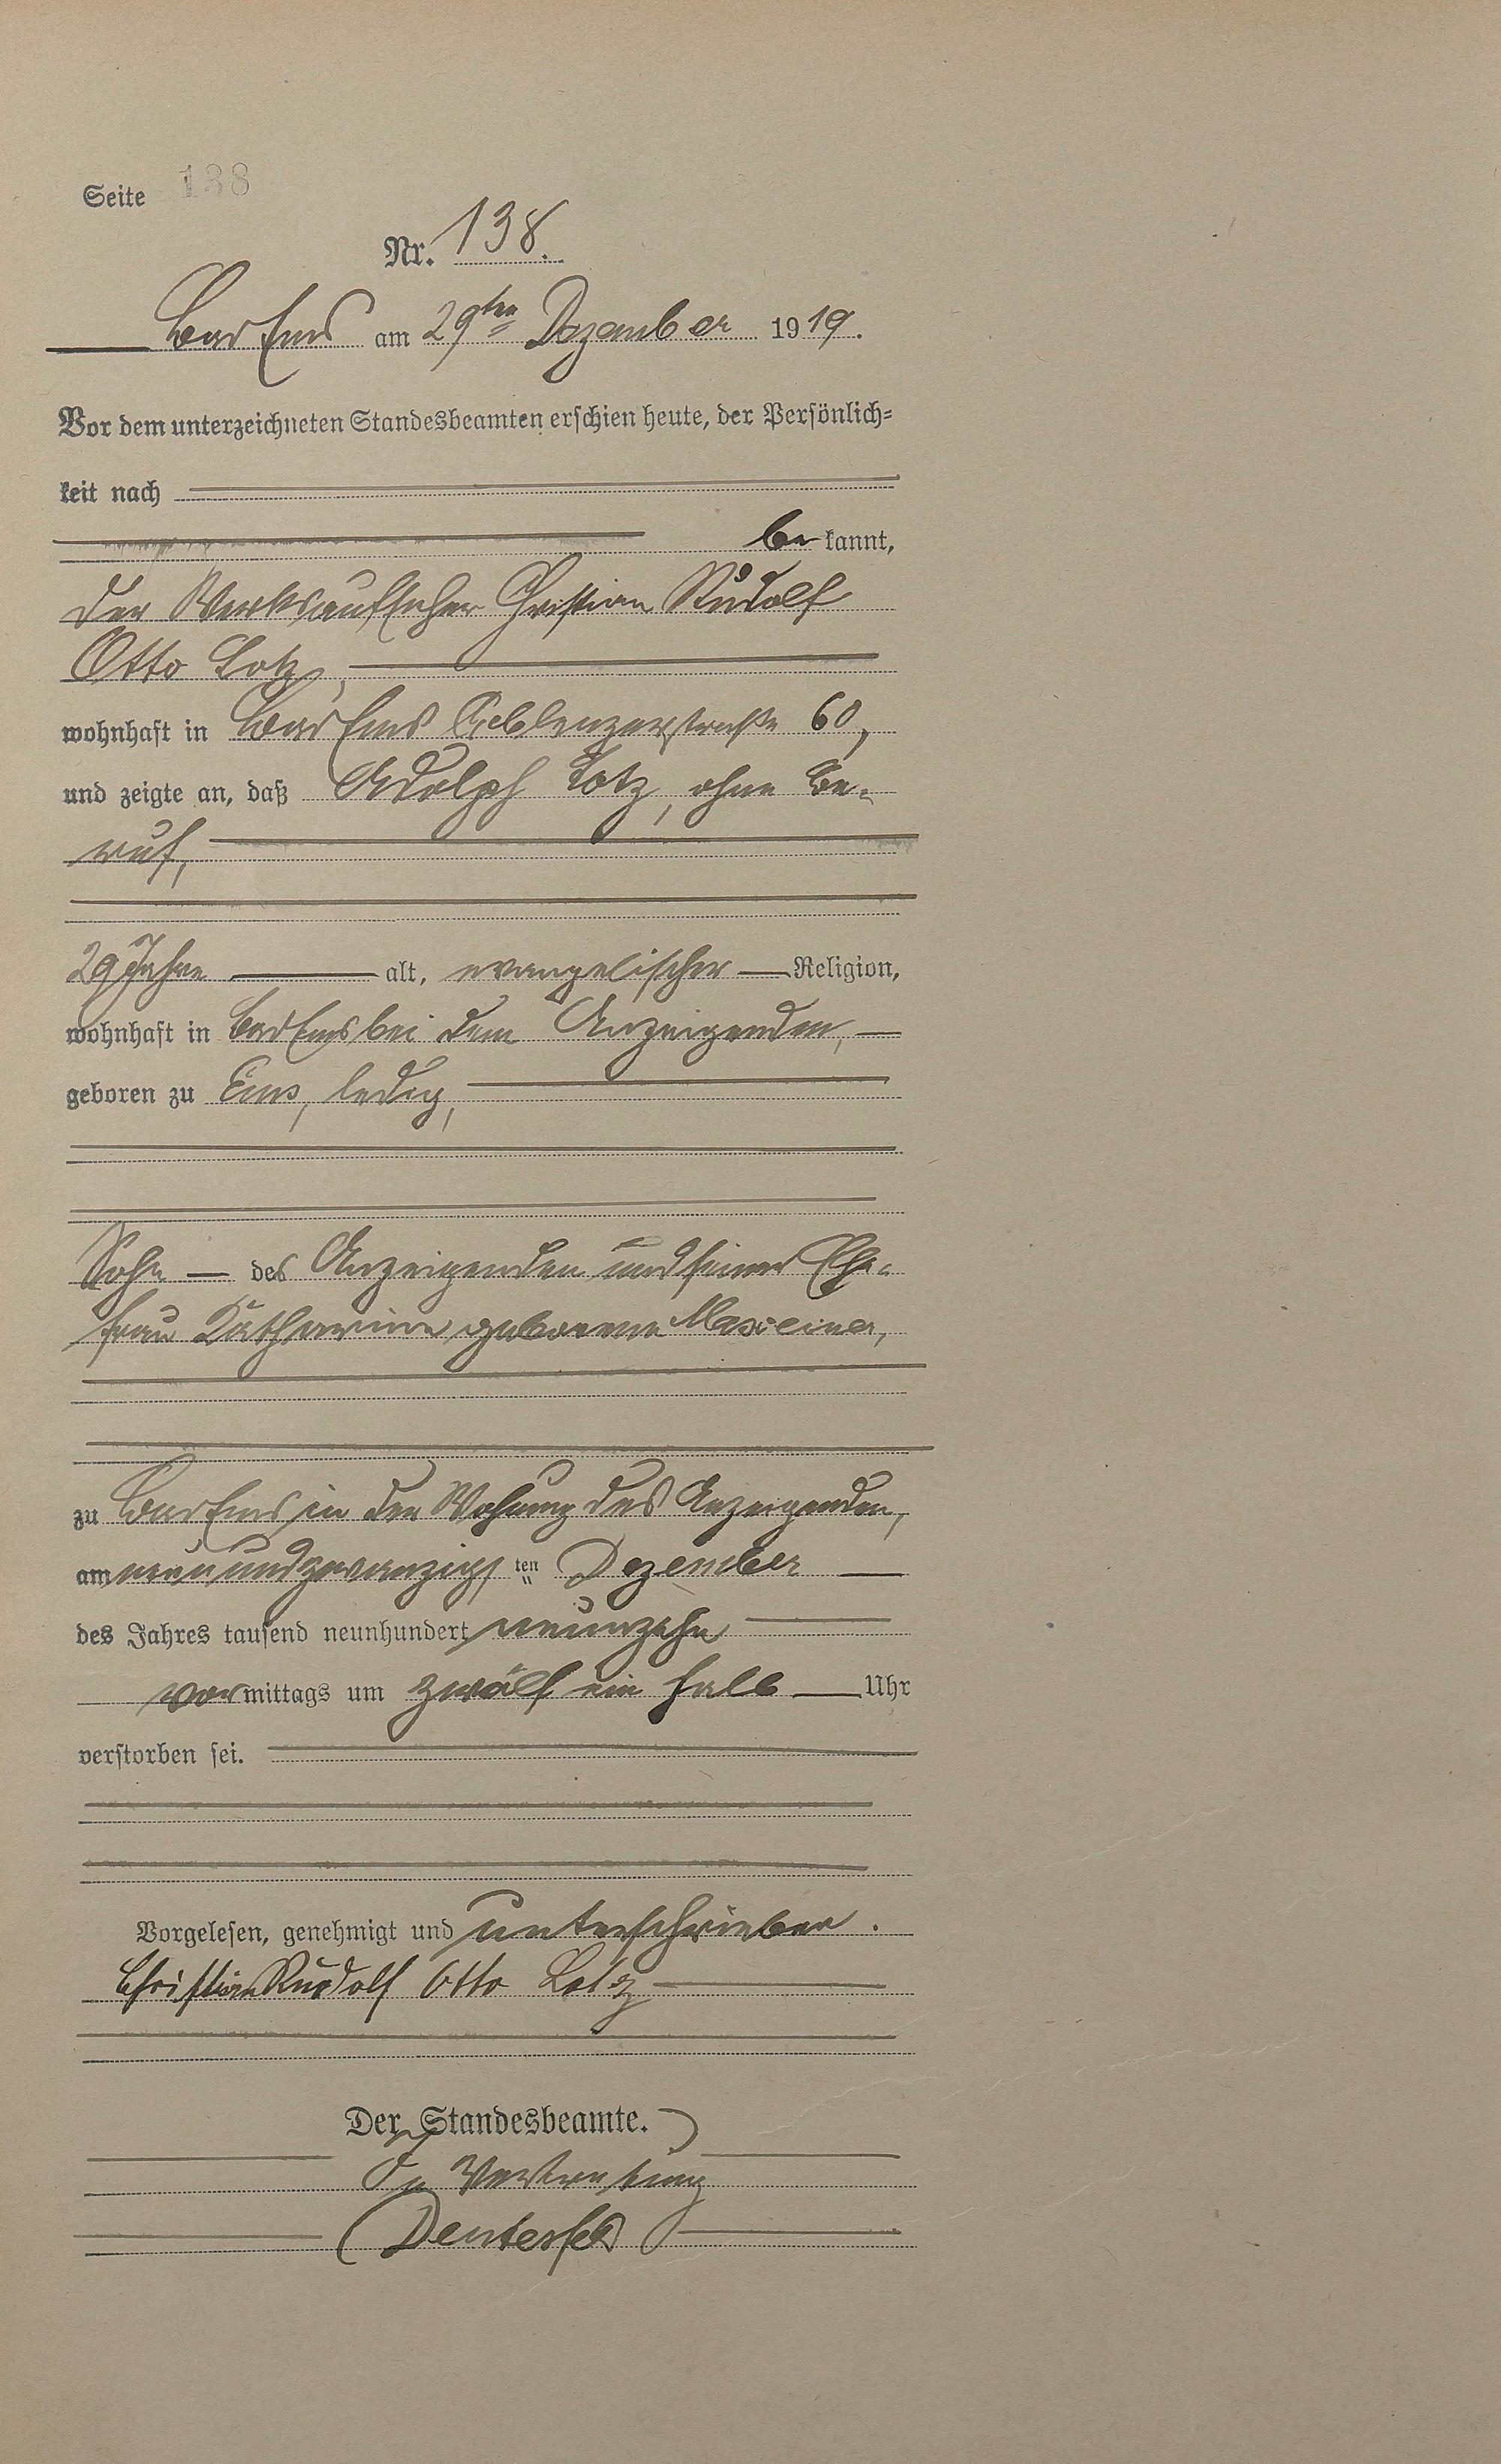 Seite 138
Nr. 138.
Bad Ems am 29ten Dezember 1919.
Vor dem unterzeichneten Standesbeamten erschien heute, der Persönlich-
keit nach
be kannt,
der Werksaufseher Christian Rudolf
Otto Lotz,
wohnhaft in Bad Ems Coblenzerstraße 60,
und zeigte an, daß Adolph Lotz, ohne Be-
ruf,
29 Jahre alt, evangelischer Religion,
wohnhaft in Bad Ems bei dem Anzeigenden,
geboren zu Ems, ledig,
Sohn des Anzeigenden und seiner Ehe-
frau Katharine geborene Maxeiner,
zu Bad Ems in der Wohnung des Anzeigenden,
am neunundzwanzigs ten Dezember
des Jahres tausend neunhundert neunzehn
vor mittags um zwölf ein halb Uhr
verstorben sei.
Vorgelesen, genehmigt und unterschrieben.
Christian Rudolf Otto Lotz
Der Standesbeamte.
In Vertretung